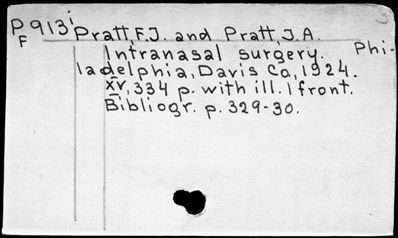 P913i Pratt, F.J. and Pratt, J.A.
F
Intranasal surgery. Phi-
ladelphia, Davis Co, 1924.
XV, 334 p. with ill. 1 front.
Bibliogr. p. 329-30.